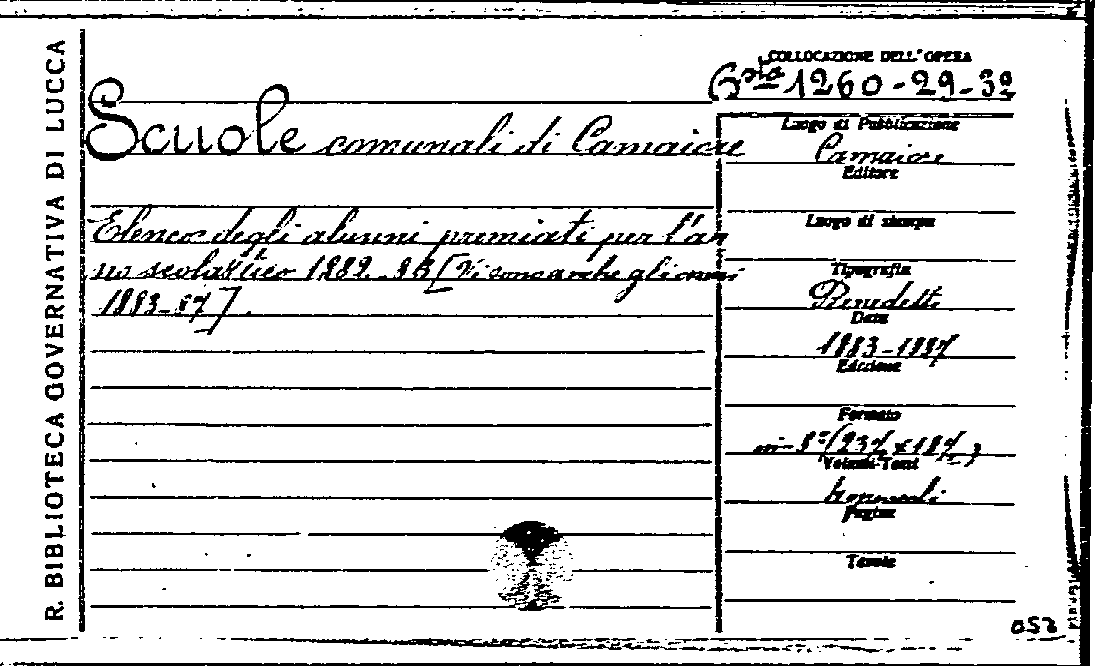 R. BIBLIOTECA GOVERNATIVA DI LUCCA
COLLOCAZIONE DELL'OPERA
Bsta 1260-29-32
Scuole comunali di Camaiore
Elenco degli alunni premiati per l'an
no scolastico 1882-83 [Vi sono anche gli anni
1883-87].
Luogo di Pubblicazione
Camaiore
Editore
Luogo di stampa
Tipografia
Benedetti
Data
1883-1887
Edizione
Formato
in-8º (237 x 187)
Volumi-Tomi
Pagine
Tavole
052